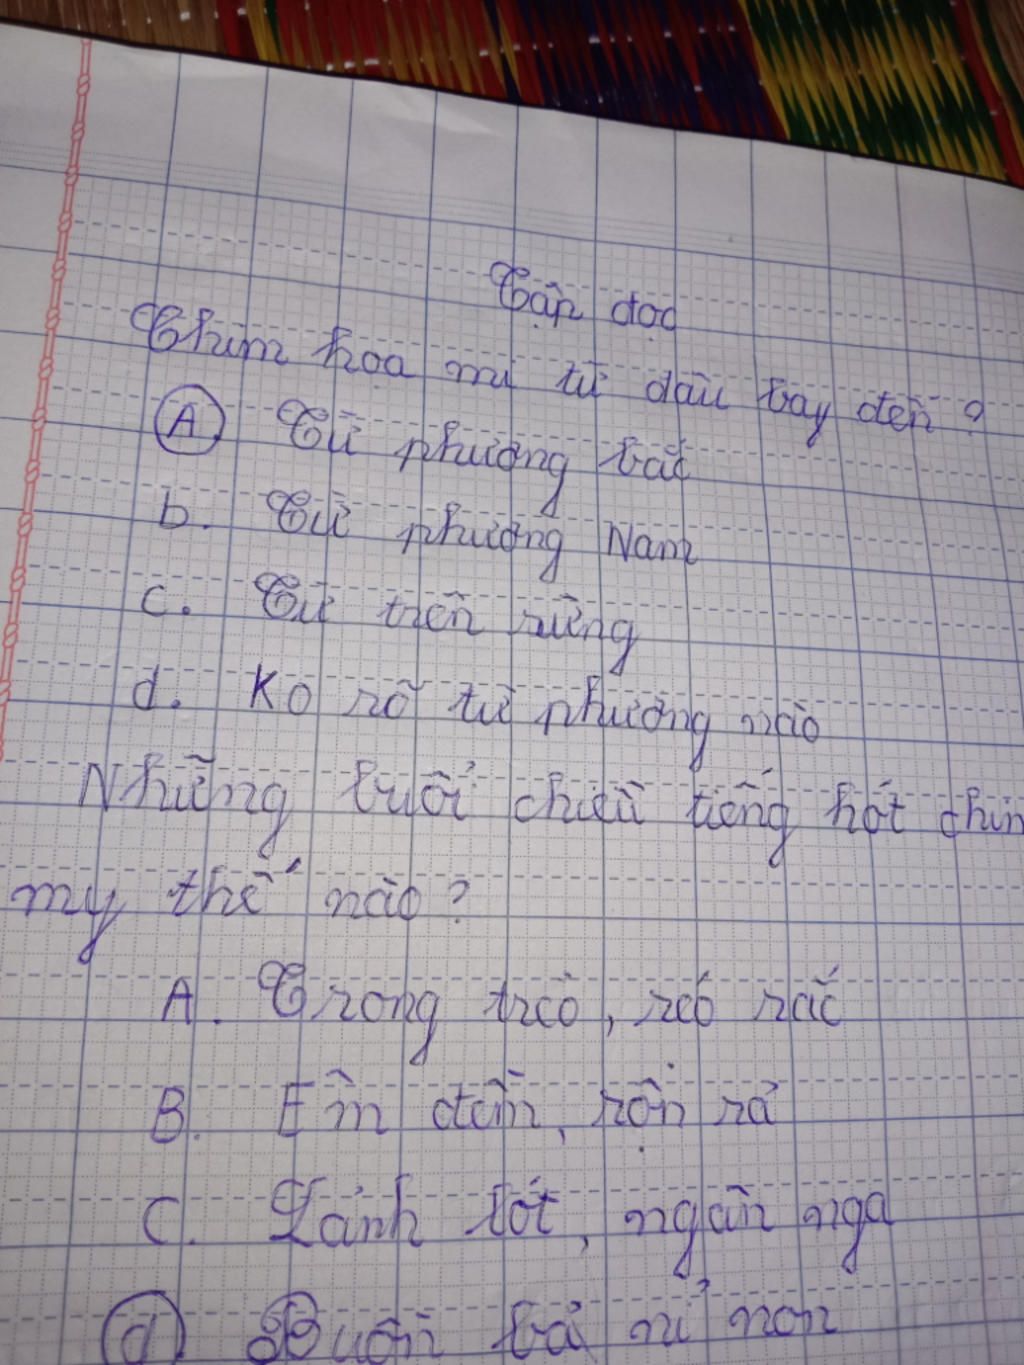 Tập đọc
Chim hoạ mi từ đâu bay đến ?
A. Từ phương bắc
b. Từ phương Nam
c. Từ trên rừng
d. Ko rõ từ phương nào
Những buổi chiều tiếng hót chim
my thế nào ?
A. Trong trẻo, réo rắc
B. Êm đềm, rộn rả
C. Lảnh lót, ngân nga
d Buồn bả nỉ non